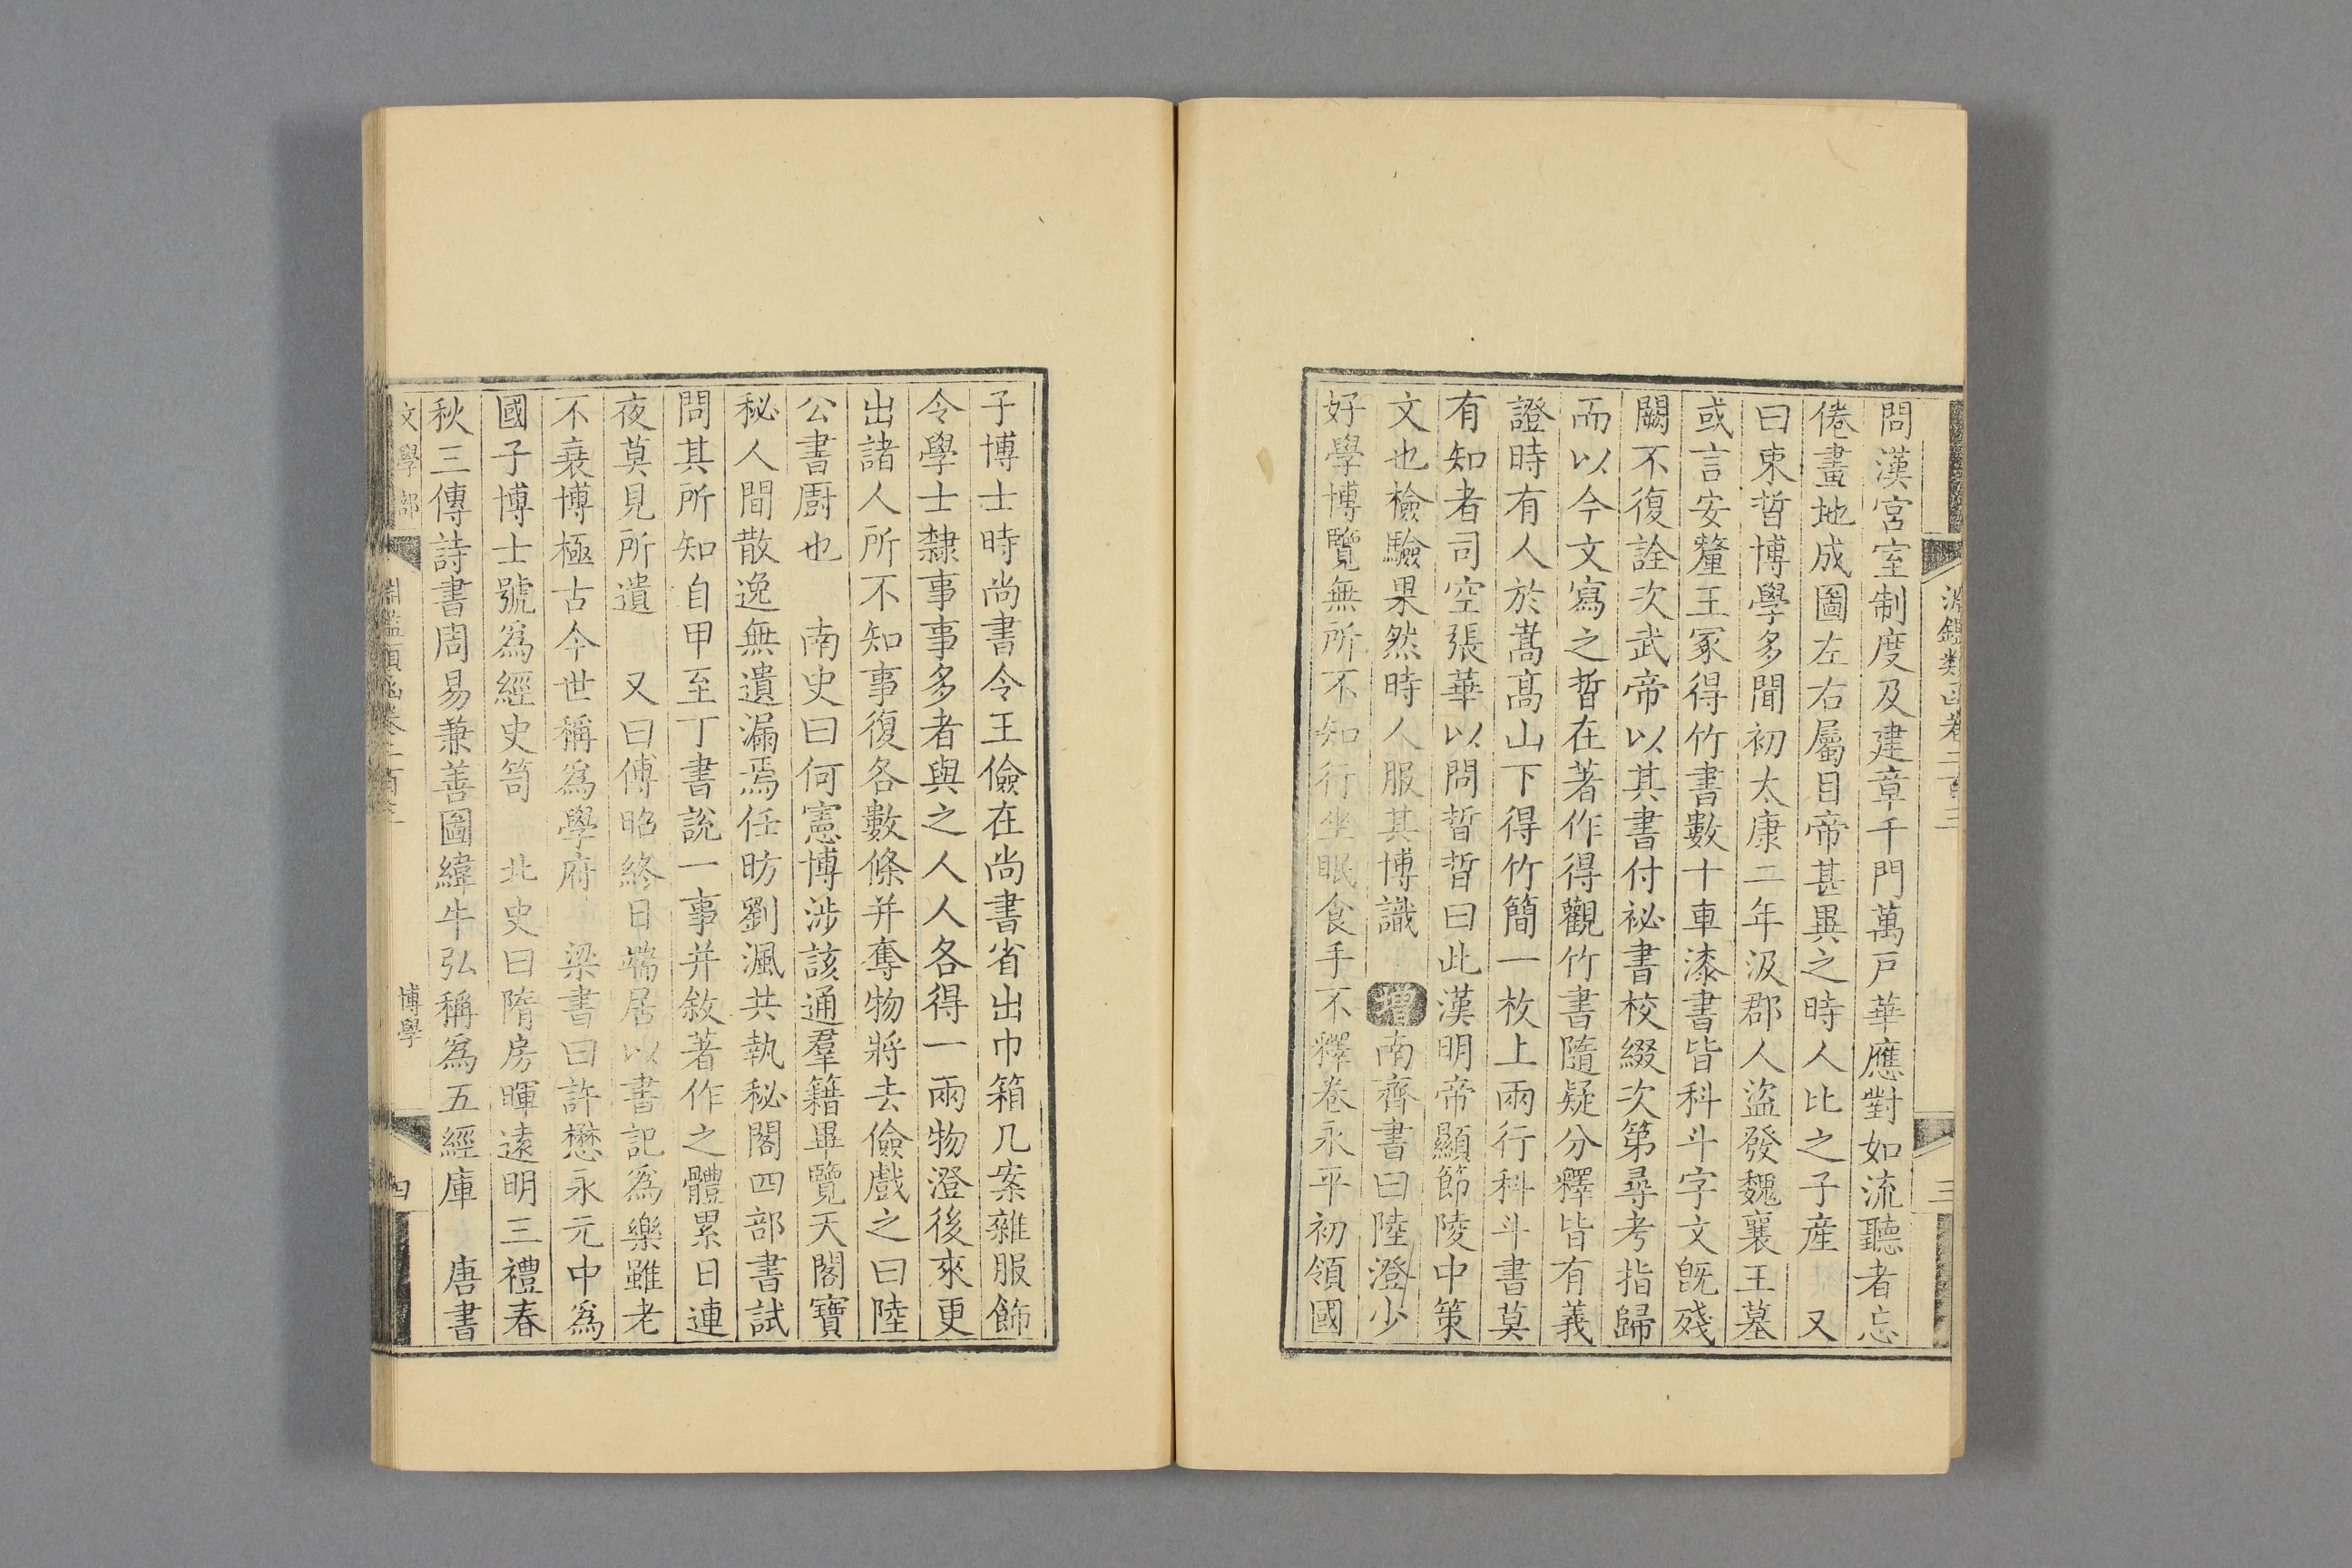 淵鑑類函卷二百三
三
問漢宮室制度及建章千門萬戸華應對如流聽者忘
倦畫地成圖左右屬目帝甚異之時人比之子產　又
曰束晳博學多聞初太康二年汲郡人盜發魏襄王墓
或言安釐王冢得竹書數十車漆書皆科斗字文旣殘
闕不復詮次武帝以其書付祕書校綴次第尋考指歸
而以今文寫之晳在著作得觀竹書隨疑分釋皆有義
證時有人於嵩高山下得竹簡一枚上兩行科斗書莫
有知者司空張華以問晳晳曰此漢明帝顯節陵中策
文也檢驗果然時人服其博識　增南齊書曰陸澄少
好學博覽無所不知行坐眠食手不釋卷永平初領國
子博士時尚書令王儉在尚書省出巾箱几案雜服飾
令學士隸事事多者與之人人各得一兩物澄後來更
出諸人所不知事復各數條并奪物將去儉戲之曰陸
公書廚也　南史曰何憲博涉該通羣籍畢覽天閣寶
秘人間散逸無遺漏焉任昉劉渢共執秘閣四部書試
問其所知自甲至丁書說一事并敘著作之體累日連
夜莫見所遺　又曰傅昭終日端居以書記爲樂雖老
不衰博極古今世稱爲學府　梁書曰許懋永元中爲
國子博士號爲經史笥　北史曰隋房暉遠明三禮春
秋三傳詩書周易兼善圖緯牛弘稱爲五經庫　唐書
文學部
淵鑑類函卷二百
博學
四